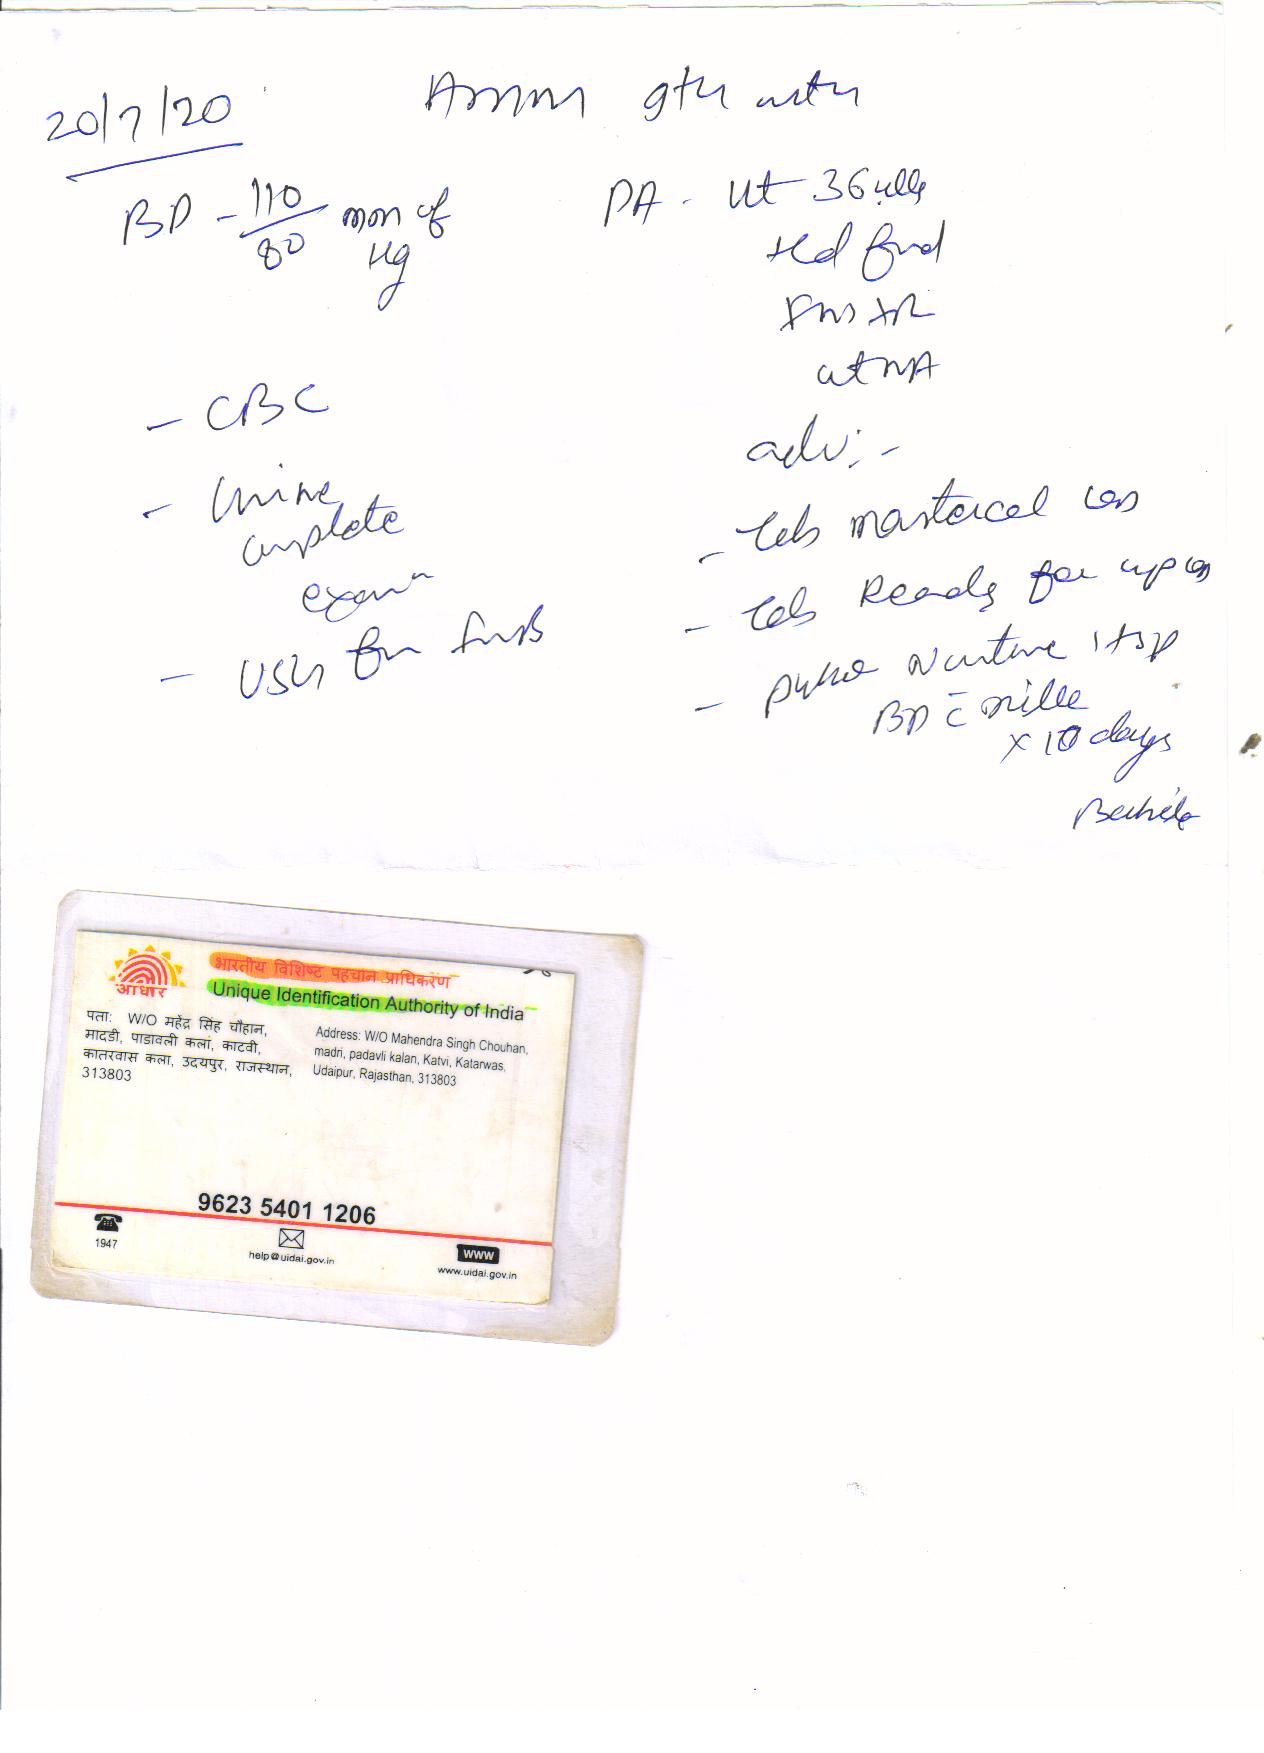 20/7/20
Amm 9th mth
BP - 110/80 mm of
Hg
PA - Ut 36 wks
Hd fixed
FHS
- CBC
- Urine
complete
exam
- USG for FWB
adv: -
- Tab mastercal
- Tab Ready for
- 1 tsp
BD c̄ milk
x 10 days
आधार
भारतीय विशिष्ट पहचान प्राधिकरण
Unique Identification Authority of India
पता: W/O महेंद्र सिंह चौहान,
मादडी, पाडावली कलां, काटवी,
कातरवास कला, उदयपुर, राजस्थान,
313803
Address: W/O Mahendra Singh Chouhan,
madri, padavli kalan, Katvi, Katarwas,
Udaipur, Rajasthan, 313803
9623 5401 1206
1947
help@uidai.gov.in
www
www.uidai.gov.in